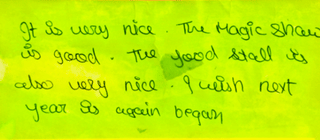 It is very nice. The Magic Show
is good. The food stall is
also very nice. I wish next
year is again began